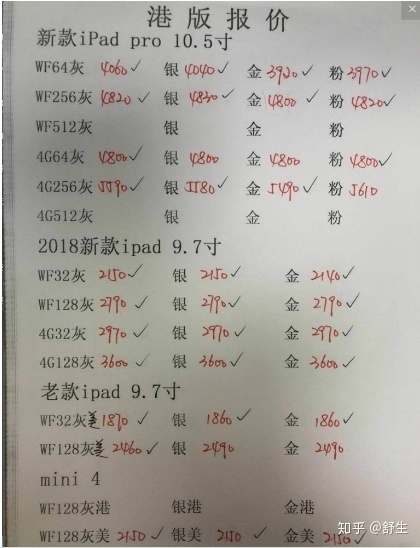 港版报价
新款iPad pro 10.5寸
WF64灰 4060 ✓ 银 4040 ✓ 金 3920 ✓ 粉 3970 ✓
WF256灰 4820 ✓ 银 4830 ✓ 金 4800 ✓ 粉 4820 ✓
WF512灰 银 金 粉
4G64灰 4800 ✓ 银 4800 金 4800 粉 4800 ✓
4G256灰 5590 ✓ 银 5580 ✓ 金 5490 ✓ 粉 5610
4G512灰 银 金 粉
2018新款ipad 9.7寸
WF32灰 2150 ✓ 银 2150 ✓ 金 2140 ✓
WF128灰 2790 ✓ 银 2790 ✓ 金 2790 ✓
4G32灰 2970 ✓ 银 2970 ✓ 金 2970 ✓
4G128灰 3600 ✓ 银 3600 ✓ 金 3600 ✓
老款ipad 9.7寸
WF32灰美 1870 ✓ 银 1860 ✓ 金 1860 ✓
WF128灰美 2460 ✓ 银 2490 金 2490
mini 4
WF128灰港 银港 金港
WF128灰美 2150 ✓ 银美 2150 ✓ 金美 2150 ✓
知乎 @舒生